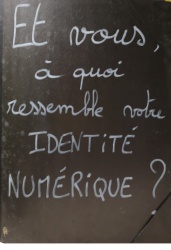 Et vous,
à quoi
ressemble votre
IDENTITÉ
NUMÉRIQUE ?